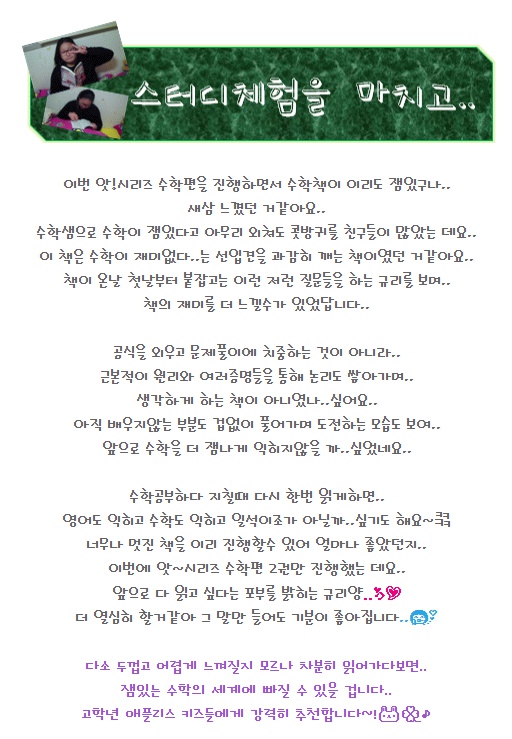 스터디체험을 마치고..
이번 앗!시리즈 수학편을 진행하면서 수학책이 이리도 잼있구나..
새삼 느꼈던 거같아요..
수학샘으로 수학이 잼있다고 아무리 외쳐도 콧방귀를 친구들이 많았는 데요..
이 책은 수학이 재미없다..는 선입견을 과감히 깨는 책이였던 거같아요..
책이 온날 첫날부터 붙잡고는 이런 저런 질문들을 하는 규리를 보며..
책의 재미를 더 느낄수가 있었답니다..
공식을 외우고 문제풀이에 치중하는 것이 아니라..
근본적이 원리와 여러증명들을 통해 논리도 쌓아가며..
생각하게 하는 책이 아니였나..싶어요..
아직 배우지않는 부분도 겁없이 풀어가며 도전하는 모습도 보여..
앞으로 수학을 더 잼나게 익히지않을 까..싶었네요..
수학공부하다 지칠때 다시 한번 읽게하면..
영어도 익히고 수학도 익히고 일석이조가 아닐까..싶기도 해요~ㅋㅋ
너무나 멋진 책을 이리 진행할수 있어 얼마나 좋았던지..
이번에 앗~시리즈 수학편 2권만 진행했는 데요..
앞으로 다 읽고 싶다는 포부를 밝히는 규리양..
더 열심히 할거같아 그 말만 들어도 기분이 좋아집니다..
다소 두껍고 어렵게 느껴질지 모르나 차분히 읽어가다보면..
잼있는 수학의 세계에 빠질 수 있을 겁니다..
고학년 애플리스 키즈들에게 강력히 추천합니다~!